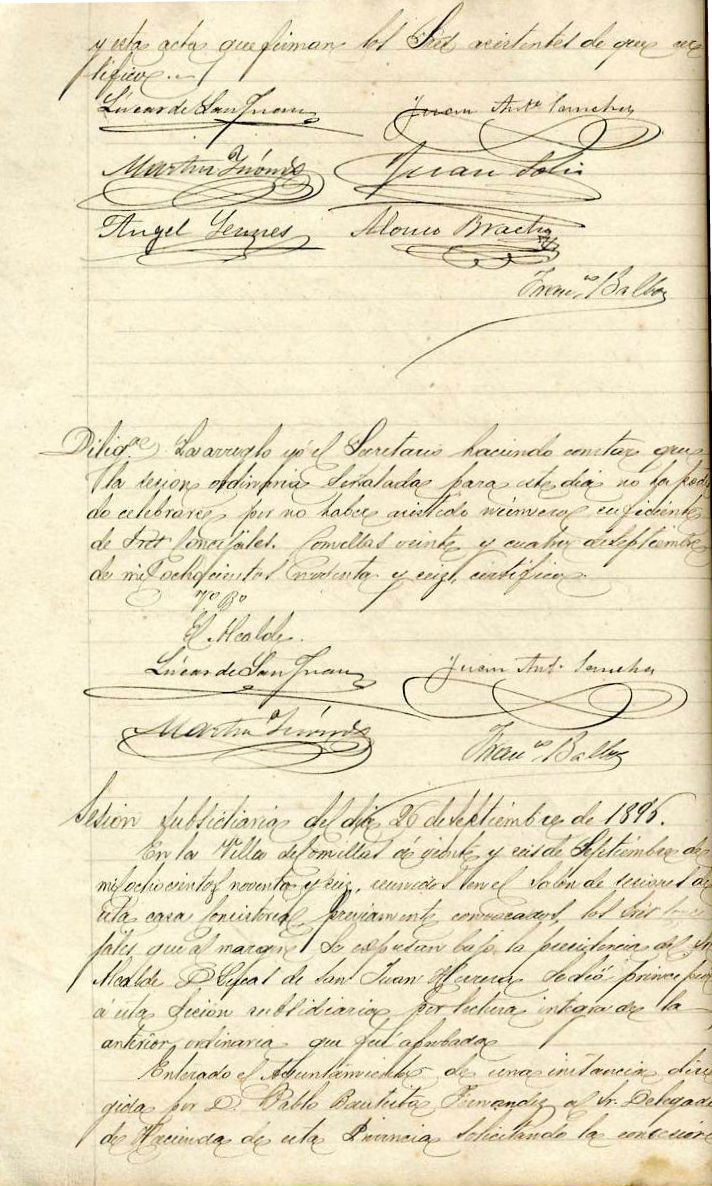 y esta acta que firman los Sres asistentes de que cer
tifico.
Lúcas de San Juan Juan Antº Sanchez
Martin Juan Solis
Angel Alonso
Franco Balbas
Diligª La arreglo yó el Secretario haciendo constar que
la sesion ordinaria señalada para este dia no ha podi
do celebrarse por no haber asistido número suficiente
de Sres Concejales. Comillas veinte y cuatro de Septiembre
de mil ochocientos noventa y seis, certifico.
Vº Bº
El Alcalde.
Lúcas de San Juan Juan Antº Sanchez
Martin Franco Balbas
Sesion subsidiaria del dia 26 de Septiembre de 1896.
En la Villa de Comillas á veinte y seis de Septiembre de
mil ochocientos noventa y seis, reunidos en el salón de sesiones de
esta casa Consistorial previamente convocados, los Sres Conce
jales que al margen se expresan bajo la presidencia del Sr
Alcalde D. Lucas de San Juan Herrera se dió principio
á esta sesión subsidiaria por lectura integra de la
anterior ordinaria que fué aprobada
Enterado el Ayuntamiento de una instancia diri
gida por D. Pablo Bautista Fernandez al Sr. Delegado
de Hacienda de esta Provincia solicitando la concesión